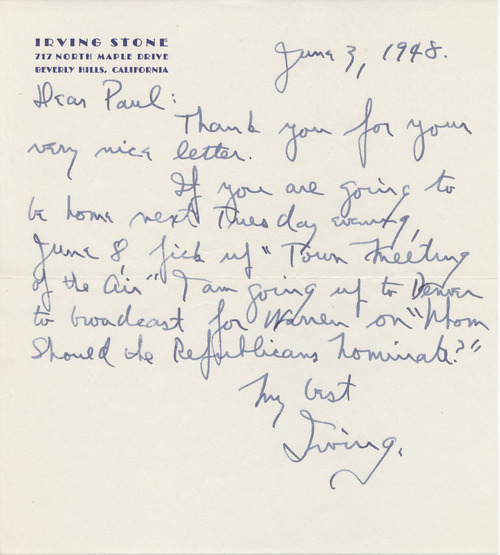 IRVING STONE
717 NORTH MAPLE DRIVE
BEVERLY HILLS, CALIFORNIA
June 3, 1948.
Dear Paul:
Thank you for your
very nice letter.
If you are going to
be home next Tuesday evening,
June 8, pick up "Town Meeting
of the Air" I am going up to Denver
to broadcast for Warren on "Whom
Should the Republicans Nominate?"
My best
Irving.